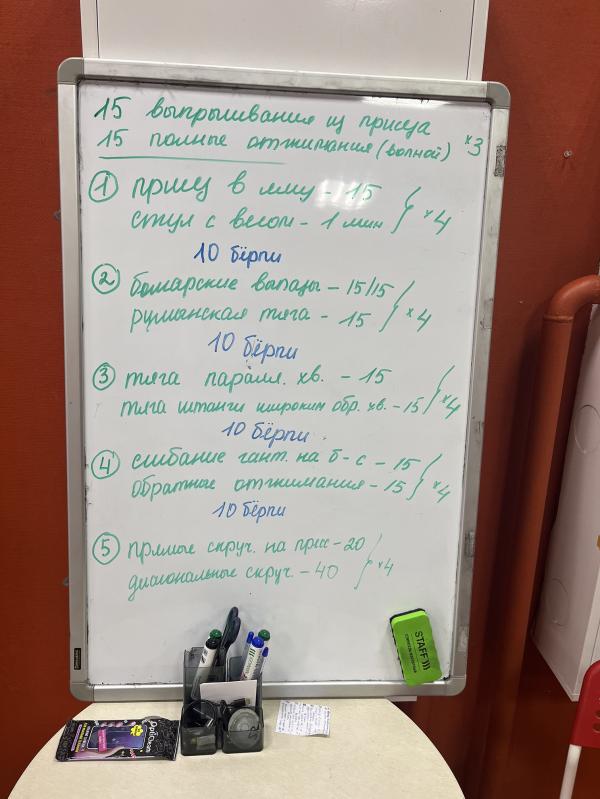 15 выпрыгивания из приседа
15 полные отжимания (волной) ×3
1 присед в яму - 15
стул с весом - 1 мин ×4
10 бёрпи
2 болгарские выпады - 15/15
румынская тяга - 15 ×4
10 бёрпи
3 тяга паралл. хв. - 15
тяга штанги широким обр. хв. - 15 ×4
10 бёрпи
4 сгибание гант. на б-с - 15
обратные отжимания - 15 ×4
10 бёрпи
5 прямые скруч. на пресс - 20
диагональные скруч. - 40 ×4
STAFF